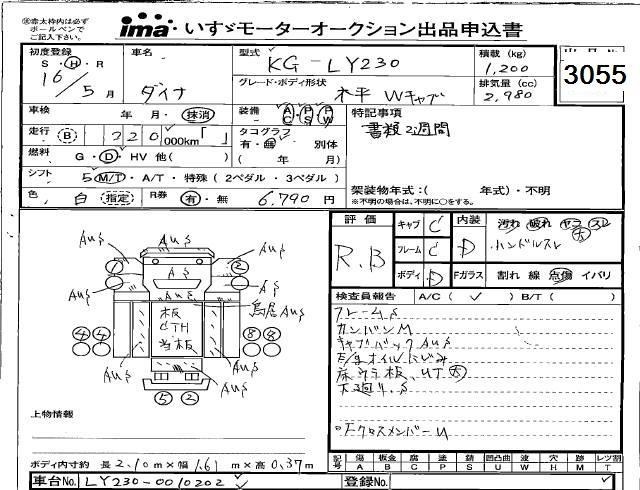 ※赤太枠内は必ず
ボールペンで
ご記入下さい。
ima いすゞモーターオークション出品申込書
初度登録 車名 型式 KG-LY230 積載(kg) 1,200
S・H・R 16/5月 ダイナ グレード・ボディ形状 木平 Wキャブ 排気量(cc) 2,980
3055
車検 年 月・抹消 装備 A/C P/S P/W 特記事項
走行 B 220,000km「 」 タコグラフ 有・無 別体 書換2週間
燃料 G・D・HV 他( ) ( 年 月)
シフト 5 M/T・A/T・特殊(2ペダル・3ペダル) 架装物年式:( 年式)・不明
色 白 指定 R券 有・無 6,790円 ※不明の場合は、不明に○をする。
評価 R.B キャブ C 内装 D 汚れ 破れ ヤコ スレ 大
フレーム C ハンドルスレ
ボディ D Fガラス 割れ 線 点傷 イバリ
検査員報告 A/C( ✓ ) B/T( )
フレームS
カンバンM
キャブバックAUS
E/gオイルにじみ
床 板、UT大
下廻り.S
Fクロスメンバー U
AUS AUS AUS
① ②
AUS AS AUS
AUS AUS
鳥居AUS
板 CTH 当板
④④ ⑧⑧
AUS AUS
AUS AUS
⑤ ②
上物情報
ボディ内寸約 長2.10m×幅1.61m×高0.37m
記号 傷 A 板金 B 腐 C 塗 P 錆 S 凹凸曲 U 波 W 穴 H 跡 M レツ割 T
車台No. LY230-0010202 登録No.